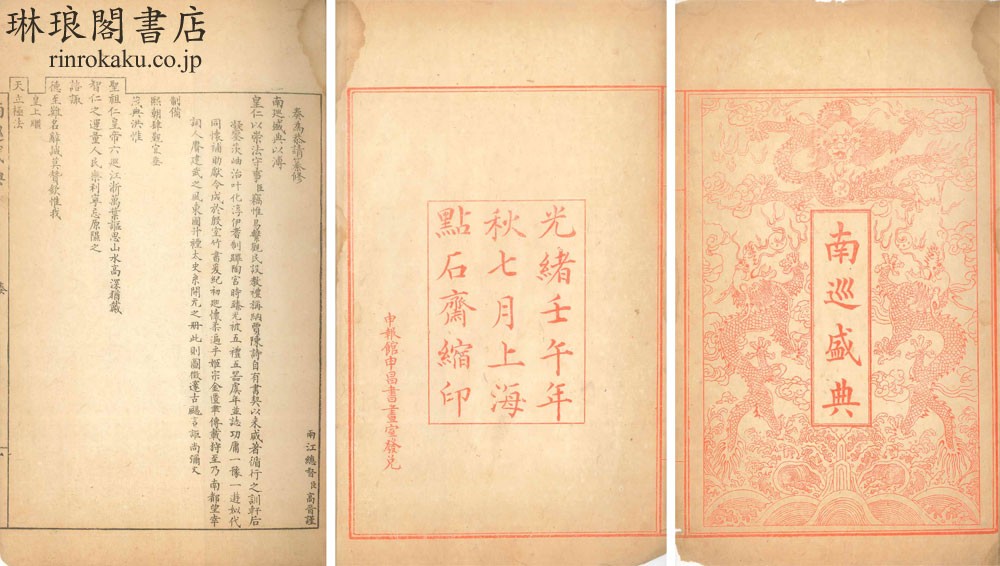 琳琅閣書店
rinrokaku.co.jp
南巡盛典
光緒壬午年
秋七月上海
點石齋縮印
申報館申昌書畫室發兌
兩江總督臣高晉謹
奏為恭請纂修
南巡盛典以溥
皇仁以崇法守事臣竊惟易繫觀民設教禮稱納賈陳詩自有書契以來咸著循行之訓軒后
茨岫治叶化淳伊耆制蹕陶宮時臻光被五禮五器虞年並誌功庸一豫一遊姒代
同懷補助獻令成於殷室竹書爰紀初巡懷柔遍乎姬宗金匱聿傳載狩至乃南都望幸
詞人賡建武之風東國升禋太史柬開元之冊此則圖徵運古颺言諏尚彌文
制備
熙朝肆覲定垂
茂典洪惟
聖祖仁皇帝六巡江浙萬葉謳思山水高深猶戴
智仁之運量人民樂利寧忘原隰之
諮諏
德至難名辭誠莫贊欽惟我
皇上繼
天立極法